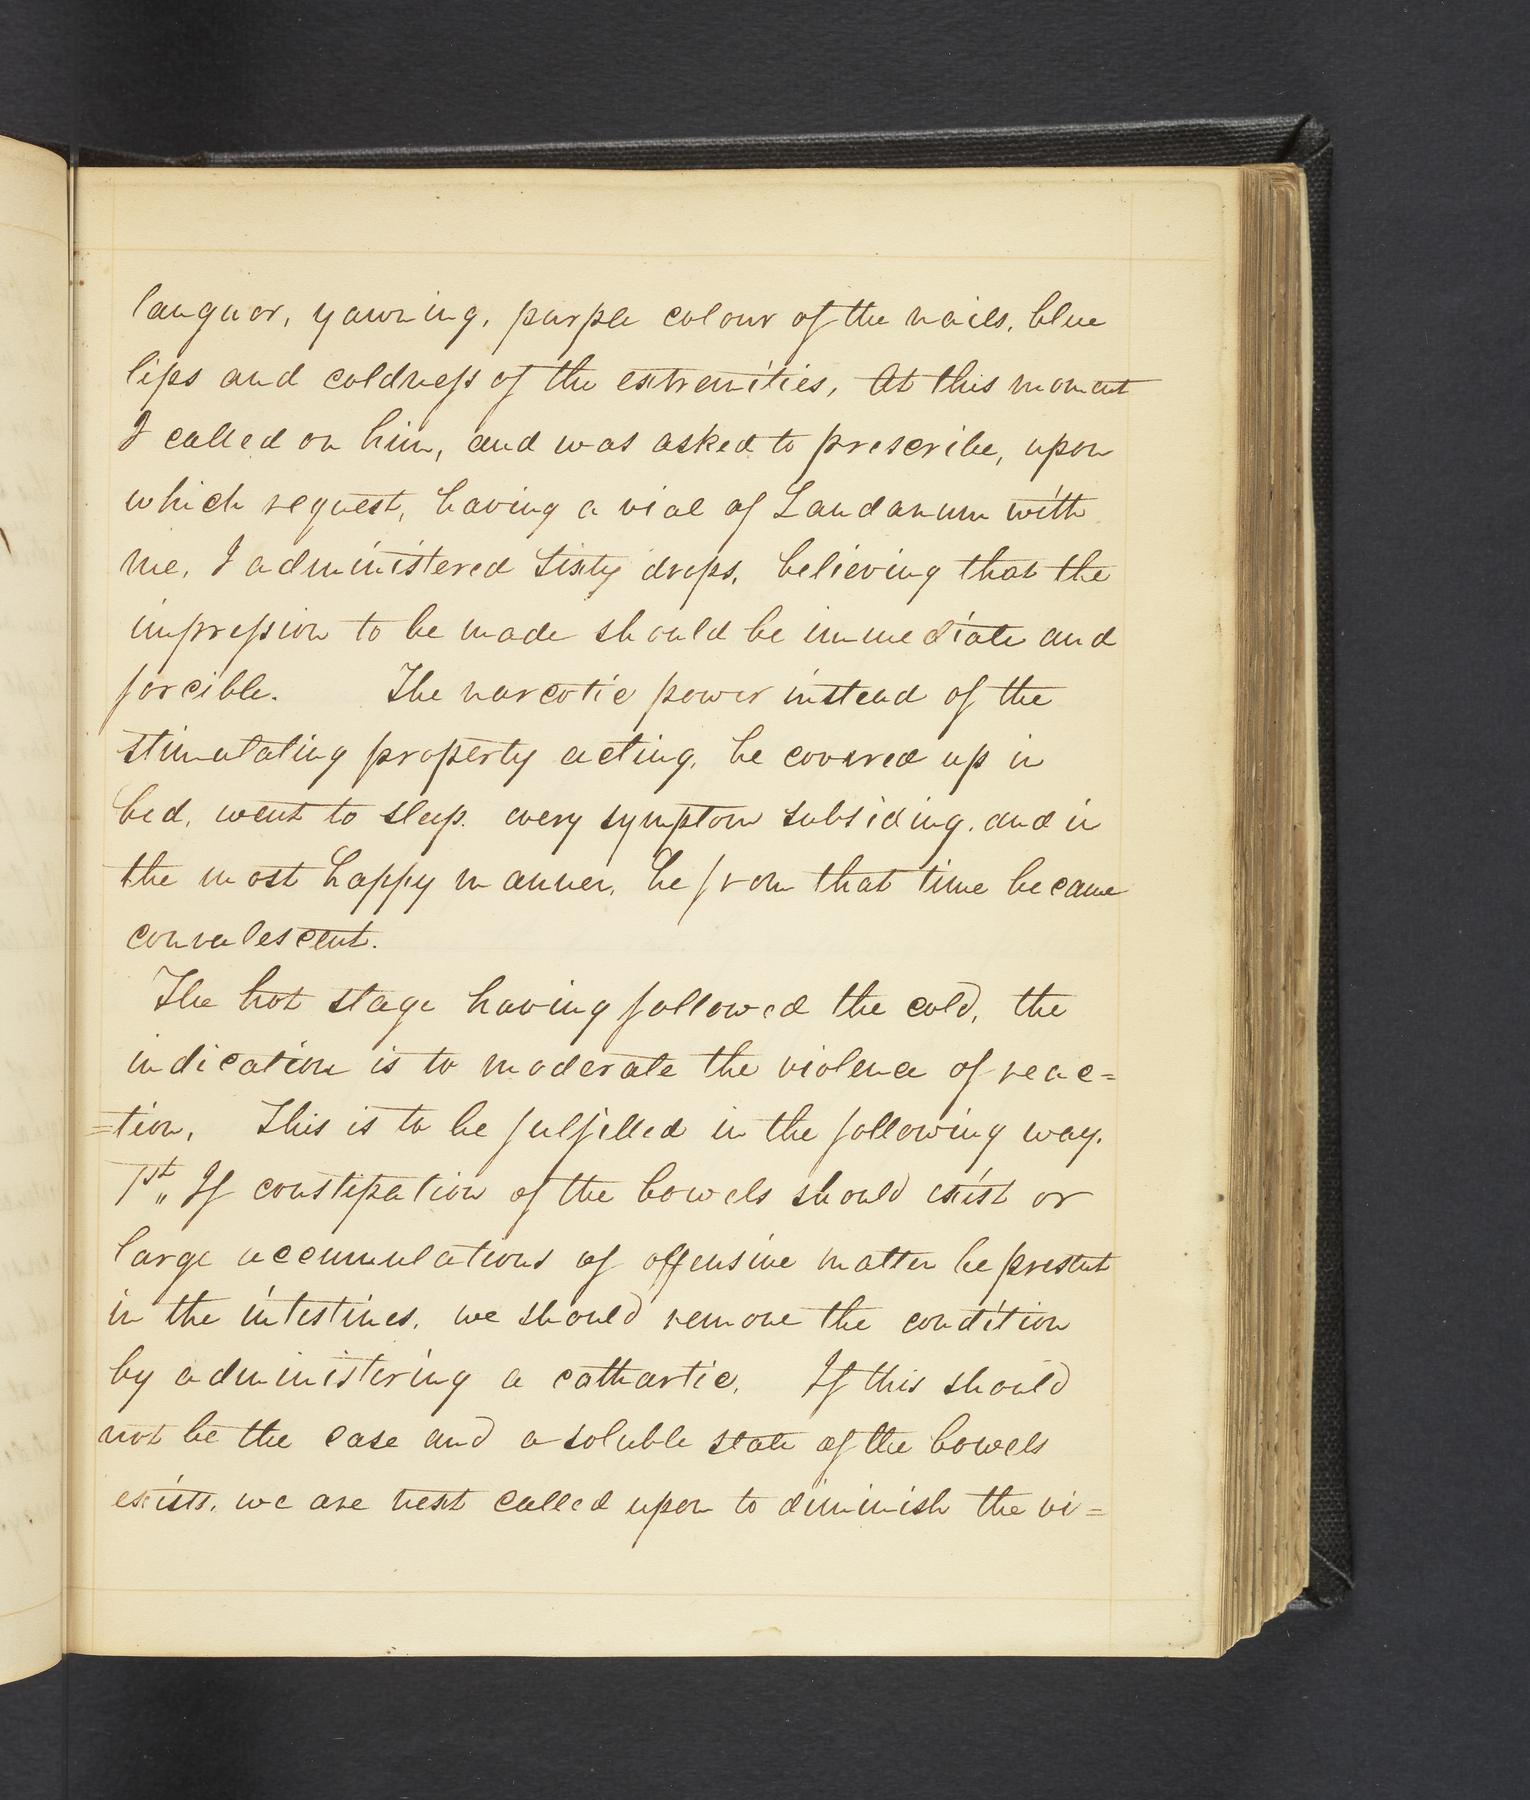 languor, yawning, purple colour of the nails, blue
lips and coldneſs of the extremities, At this moment
I called on him, and was asked to prescribe, upon
which request, having a vial of Laudanum with
me, I administered Sixty drops, believing that the
impreſsion to be made should be immediate and
forcible. The narcotic power instead of the
stimulating property acting, he covered up in
bed, went to sleep. every symptom subsiding, and in
the most happy manner, he from that time became
convalescent.
The hot stage having followed the cold, the
indication is to moderate the violence of reac=
=tion, This is to be fulfilled in the following way.
1st,, If constipation of the bowels should exist or
large accumulations of offensive matter be present
in the intestines, we should remove the condition
by administering a cathartic. If this should
not be the case and a soluble state of the bowels
exists, we are next called upon to diminish the vi=